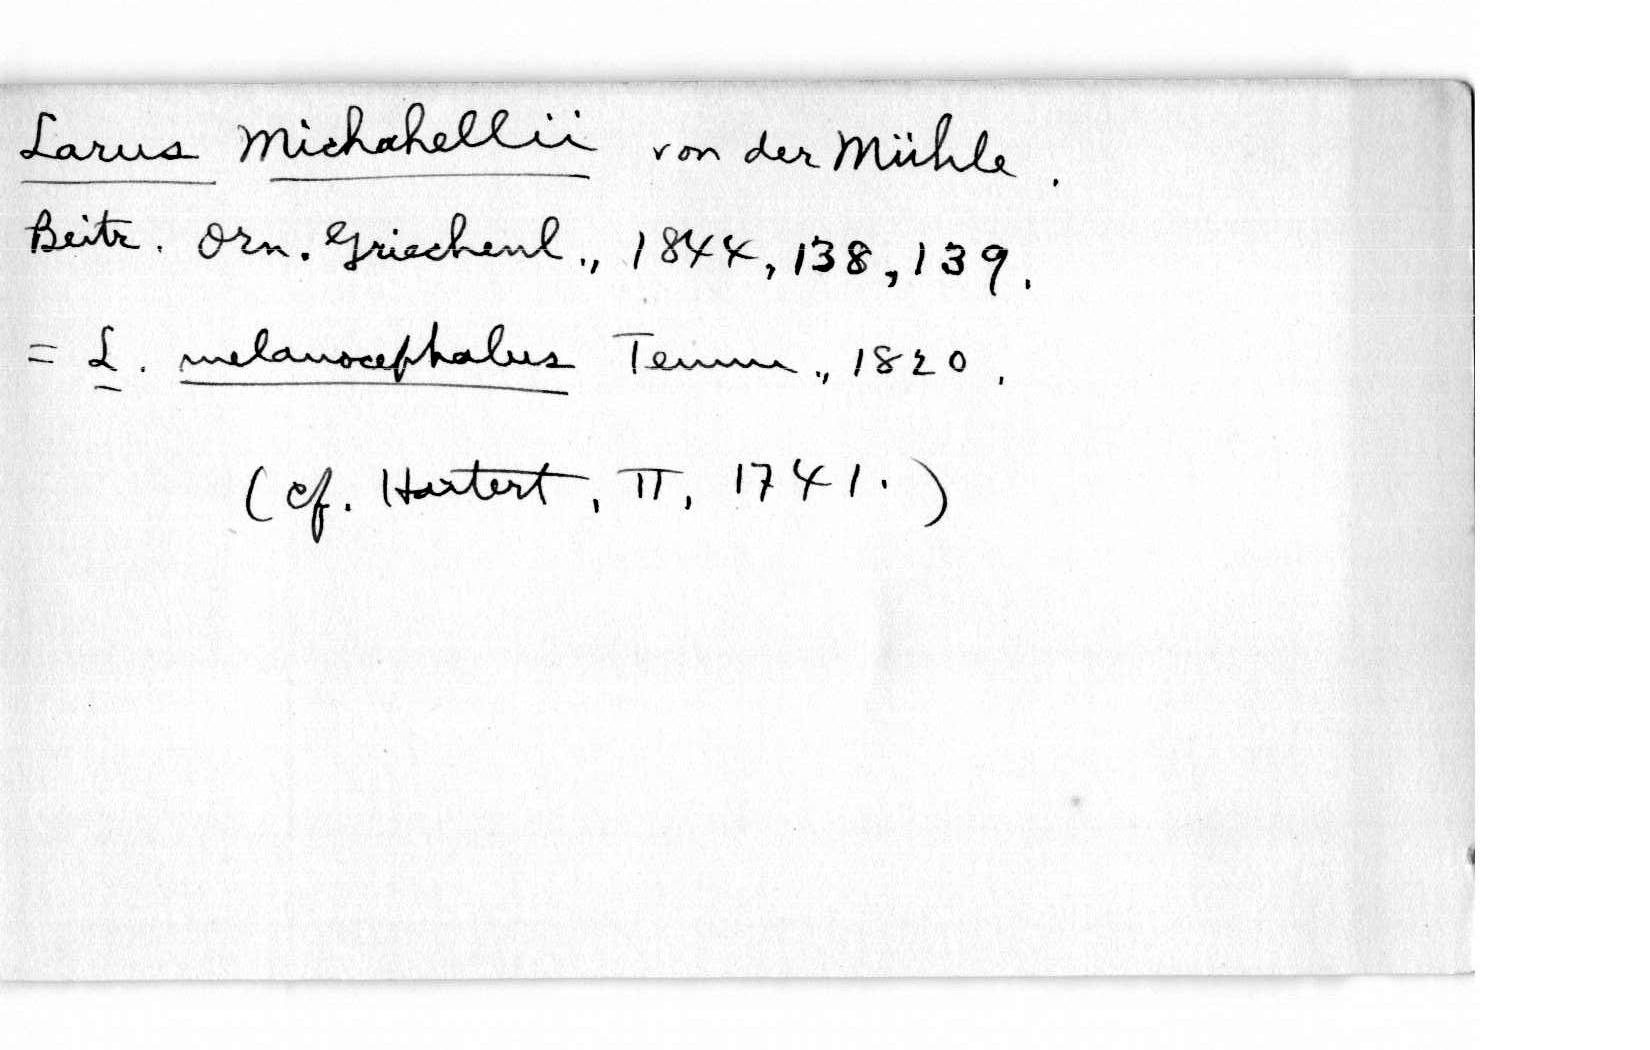 Larus Michahellii von der Mühle.
Beitr. Orn. Griechenl., 1844, 138, 139.
= L. melanocephalus Temm., 1820.
(cf. Hartert, II, 1741.)